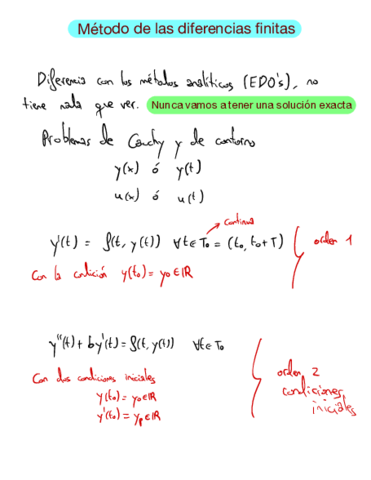 Método de las diferencias finitas
Diferencia con los métodos analíticos (EDO's), no
tiene nada que ver. Nunca vamos a tener una solución exacta
Problemas de Cauchy y de contorno
y(x) ó y(t)
u(x) ó u(t)
continua
y'(t) = f(t, y(t)) ∀t∈T₀ = (t₀, t₀+T) orden 1
Con la condición y(t₀) = y₀∈ℝ
y''(t) + by'(t) = f(t, y(t)) ∀t∈T₀
Con dos condiciones iniciales
orden 2
y(t₀) = y₀∈ℝ
condiciones
y'(t₀) = yₚ∈ℝ
iniciales